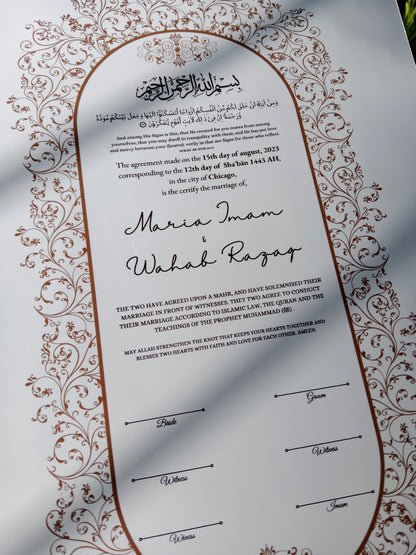 بِسْمِ اللهِ الرَّحْمٰنِ الرَّحِيْمِ
وَمِنْ اٰيٰتِهٖ اَنْ خَلَقَ لَكُمْ مِّنْ اَنْفُسِكُمْ اَزْوَاجًا لِّتَسْكُنُوْٓا اِلَيْهَا وَجَعَلَ بَيْنَكُمْ مَّوَدَّةً
وَّرَحْمَةً اِنَّ فِيْ ذٰلِكَ لَاٰيٰتٍ لِّقَوْمٍ يَّتَفَكَّرُوْنَ
And among His Signs is this, that He created for you mates from among
yourselves, that you may dwell in tranquility with them, and He has put love
and mercy between your (hearts): verily in that are Signs for those who reflect
The agreement made on the 15th day of august, 2023
corresponding to the 12th day of Sha'bān 1443 AH,
in the city of Chicago,
is the certify the marriage of,
Maria Imam
&
Wahab Razaq
THE TWO HAVE AGREED UPON A MAHR, AND HAVE SOLEMNISED THEIR
MARRIAGE IN FRONT OF WITNESSES. THEY TWO AGREE TO CONDUCT
THEIR MARRIAGE ACCORDING TO ISLAMIC LAW, THE QURAN AND THE
TEACHINGS OF THE PROPHET MUHAMMAD (ﷺ).
MAY ALLAH STRENGTHEN THE KNOT THAT KEEPS YOUR HEARTS TOGETHER AND
BLESSES TWO HEARTS WITH FAITH AND LOVE FOR EACH OTHER. AMEEN.
Bride
Groom
Witness
Witness
Winess
Imam